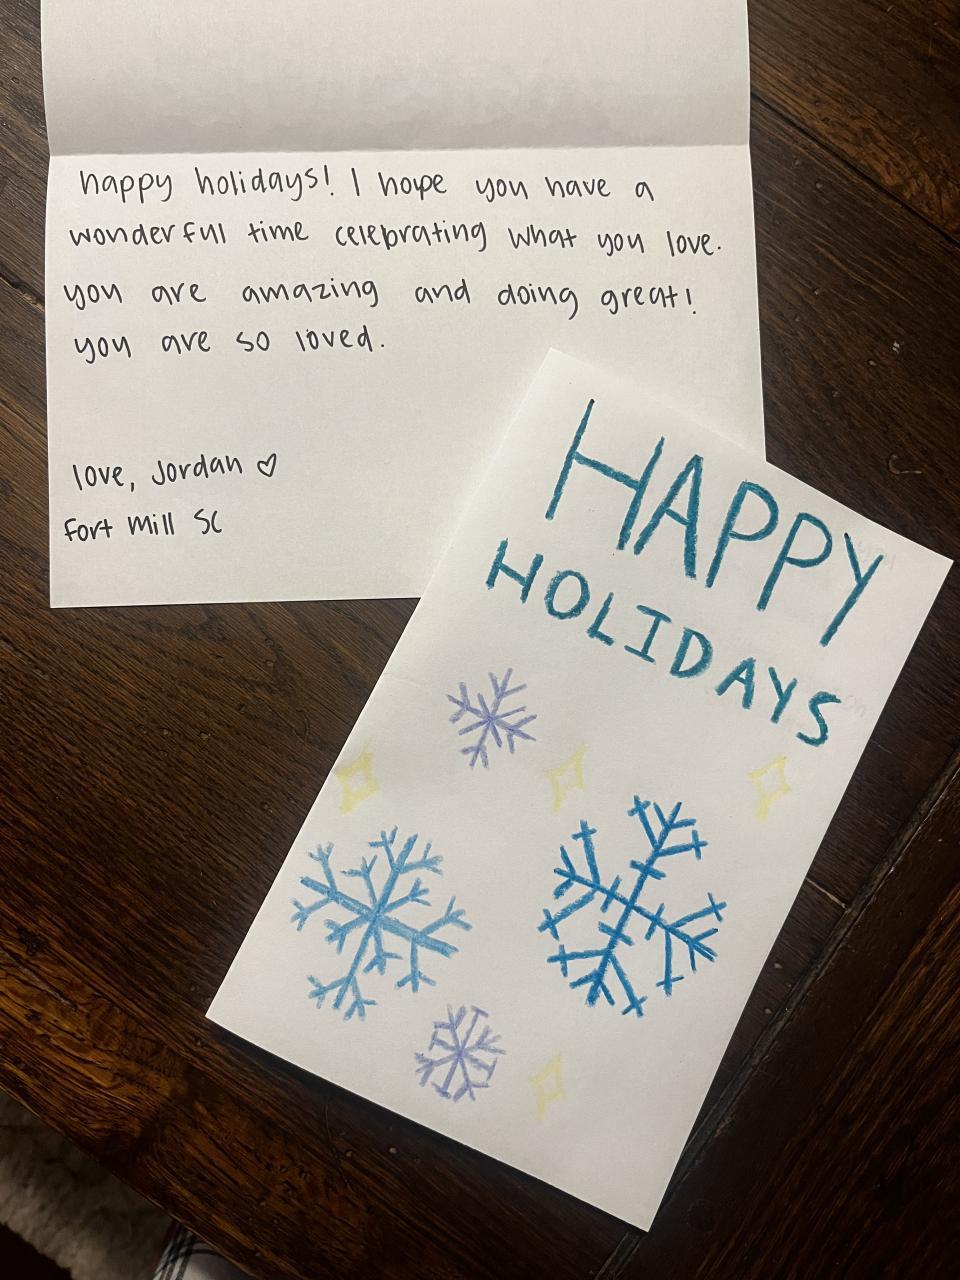 happy holidays! I hope you have a
wonderful time celebrating what you love.
you are amazing and doing great!
you are so loved.
love, Jordan ♡
Fort Mill SC
HAPPY
HOLIDAYS